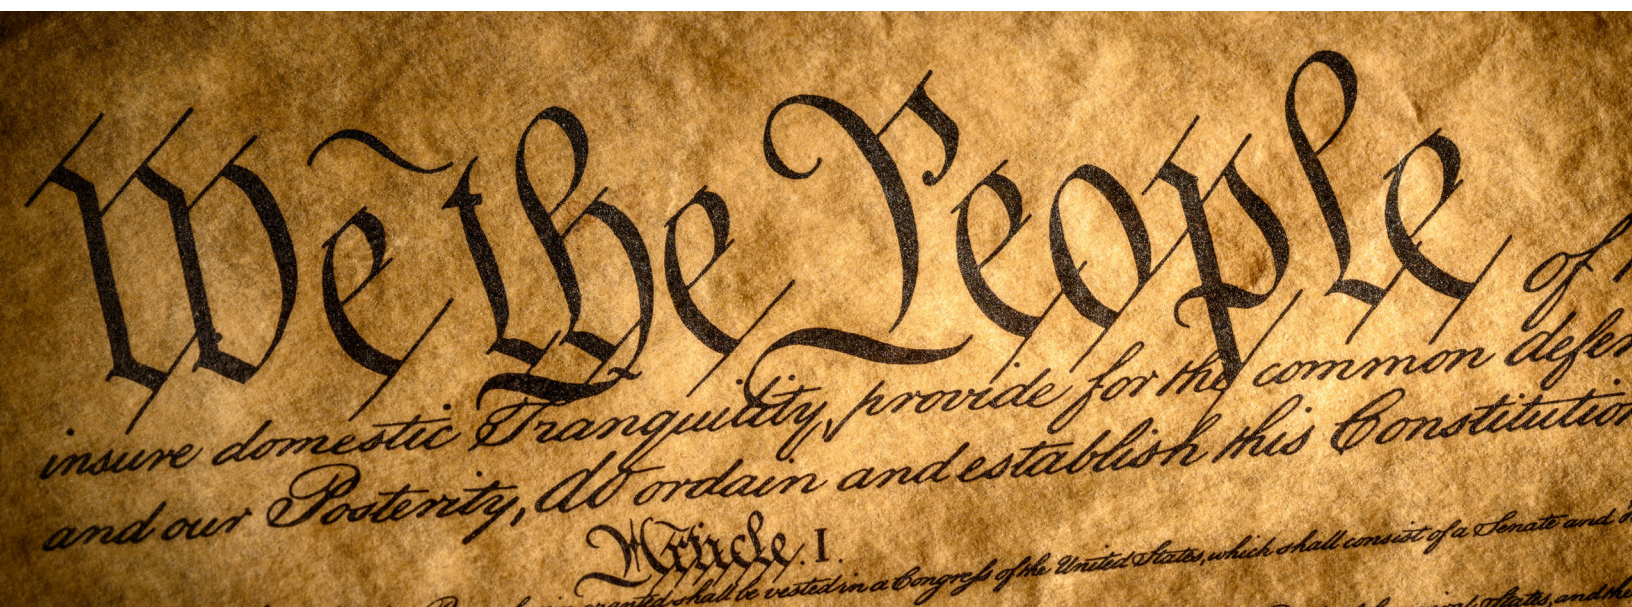 We the People of
insure domestic Tranquility, provide for the common defen
and our Posterity, do ordain and establish this Constitution
Article. I.
granted shall be vested in a Congress of the United States, which shall consist of a Senate and
States, and the